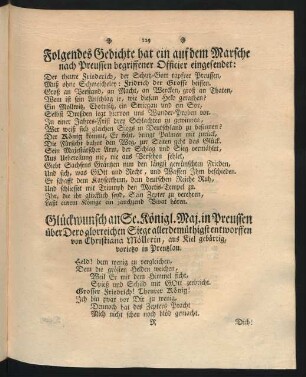 129
Folgendes Gedichte hat ein auf dem Marsche
nach Preussen begriffener Officier eingesendet:
Der theure Friederich, der Schutz-Gott tapfrer Preussen,
Muß ohne Schmeicheley: Fridrich der Grosse heissen.
Groß an Verstand, an Macht, an Wercken, groß an Thaten,
Wem ist sein Anschlag je, wie diesem Held gerathen?
Ein Mollwitz, Chotusitz, ein Striegau und ein Sor,
Selbst Dresden legt hievon uns Wunder-Proben vor.
In einer Jahres-Frist drey Schlachten zu gewinnen,
Wer weiß sich gleichen Siege in Deutschland zu besinnen?
Der König kommt, Er sieht, bringt Palmen mit zurück,
Sein Majestätischer Arm, der Schlag und Sieg verknüpft,
Aus Uebereilung nie, nie aus Versehen
Giebt Sachsens Gräntzen nun den längst erwünschten Frieden,
Und sich, was GOtt und Recht, und Waffen Ihm beschieden.
Er schafft dem Kayserthum, dem deutschen Reiche Rath,
Und schliesset mit Triumph den Martis-Tempel zu.
Ihn, die ihr glücklich seyd, Sein Zepter zu verehren,
Laßt eurem Könige ein jauchzend Vivat hören.
Glückwunsch an Se. Königl. Maj. in Preussen
über Dero glorreichen Siege allerdemüthigst entworffen
von Christiana Müllerin, aus Kiel gebürtig,
vorietzo in Prentzlau.
Held! dem wenig zu vergleichen,
Dem die grösten Helden weichen,
Weil Er mit dem Himmel sicht,
Spieß und Schild mit GOtt zerbricht.
Grosser Friedrich! Theurer König!
Ich bin zwar vor Dir zu wenig,
Dennoch hat des Zepters Pracht
Mich nicht schon noch blöd gemacht.
R
Dich!